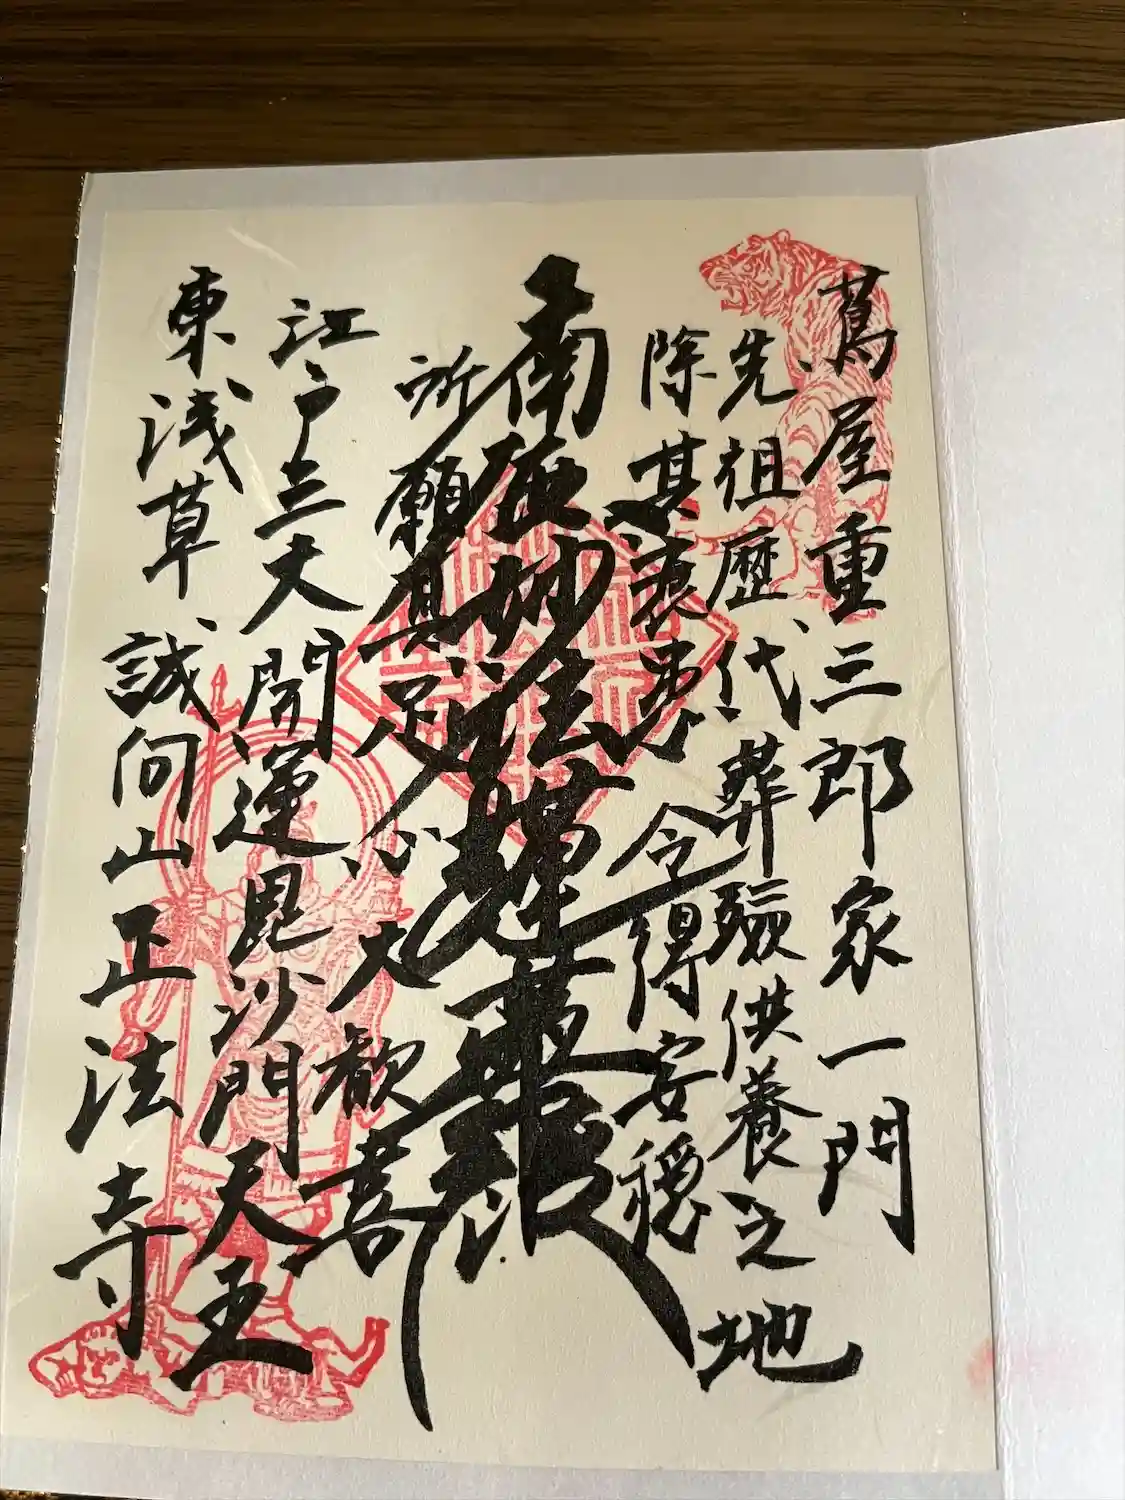 蔦屋重三郎家一門
先祖歴代葬驗供養之地
除其衰患 令得安穏
南無妙法蓮華経
所願具足心大歓喜
江戸三大開運毘沙門天王
東浅草 誠向山正法寺